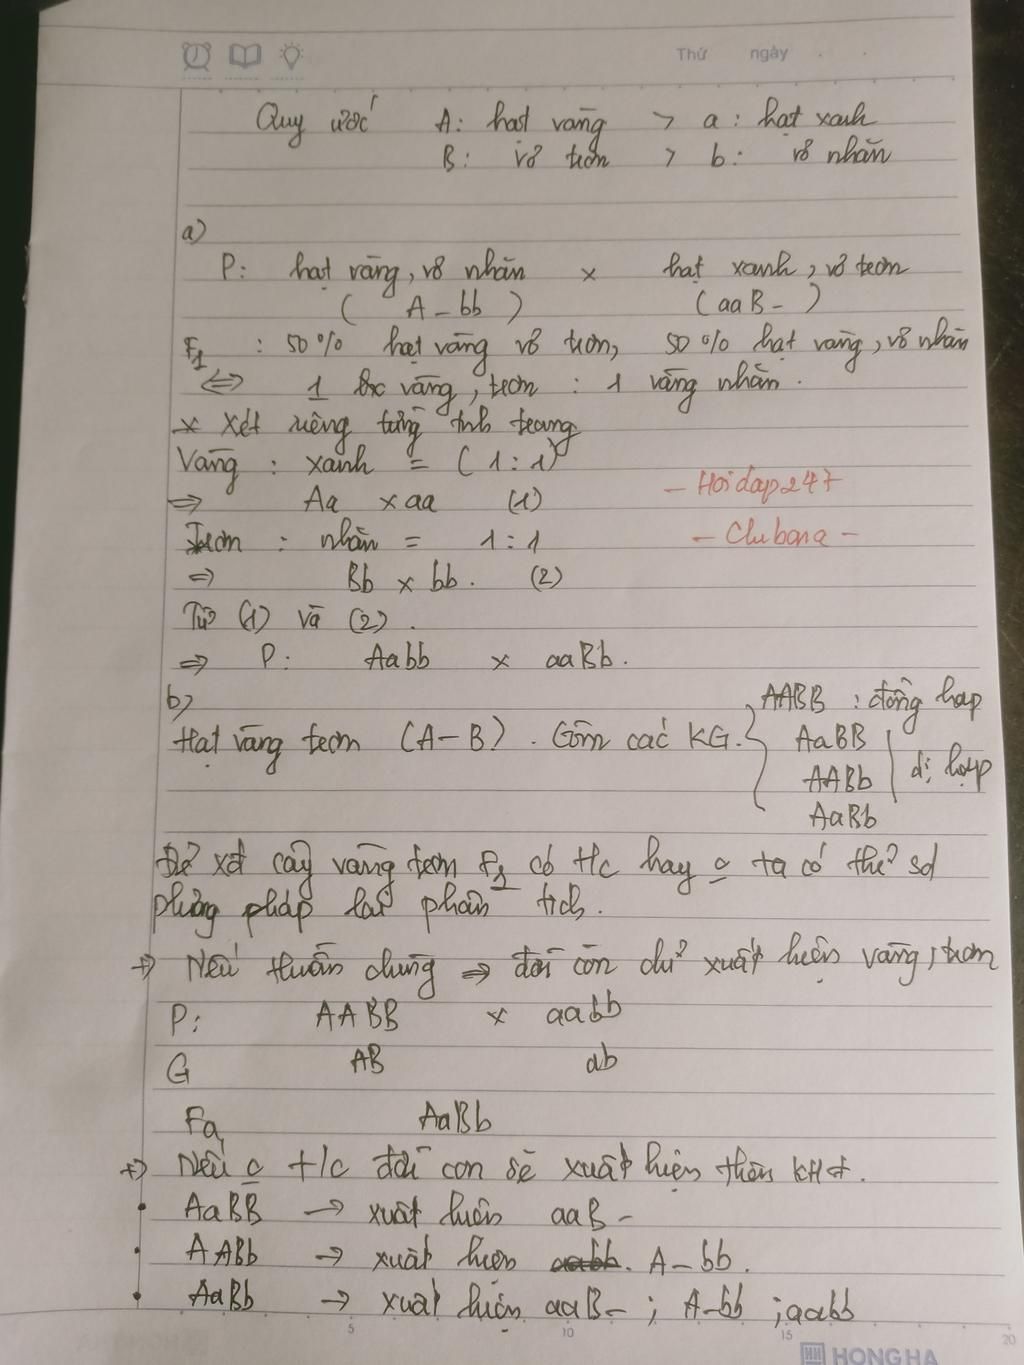 Thứ ngày
Quy ước A: hạt vàng > a: hạt xanh
B: vỏ trơn > b: vỏ nhăn
a)
P: hạt vàng, vỏ nhăn × hạt xanh, vỏ trơn
(A-bb) (aaB-)
F1: 50% hạt vàng vỏ trơn, 50% hạt vàng, vỏ nhăn
⇔ 1 vàng, trơn : 1 vàng nhăn.
* Xét riêng từng tính trạng
Vàng : xanh = (1:1)
⇒ Aa × aa (1)
- Hoidap247
Trơn : nhăn = 1:1
- Clubona -
⇒ Bb × bb. (2)
Từ (1) và (2).
⇒ P: Aabb × aaBb.
b)
AABB : đồng hợp
Hạt vàng trơn (A-B). Gồm các KG.
AaBB
AABb
dị hợp
AaBb
Để xđ cây vàng trơn F1 có t/c hay o ta có thể sd
phương pháp lai phân tích.
+) Nếu thuần chủng ⇒ đời con chỉ xuất hiện vàng, trơn
P: AABB × aabb
G AB ab
Fa AaBb
+) Nếu o t/c đời con sẽ xuất hiện thêm KH#.
• AaBB → xuất hiện aaB-
• AABb → xuất hiện A-bb.
• AaBb → xuất hiện aaB- ; A-bb ; aabb
5 10 15 20
HONG HA